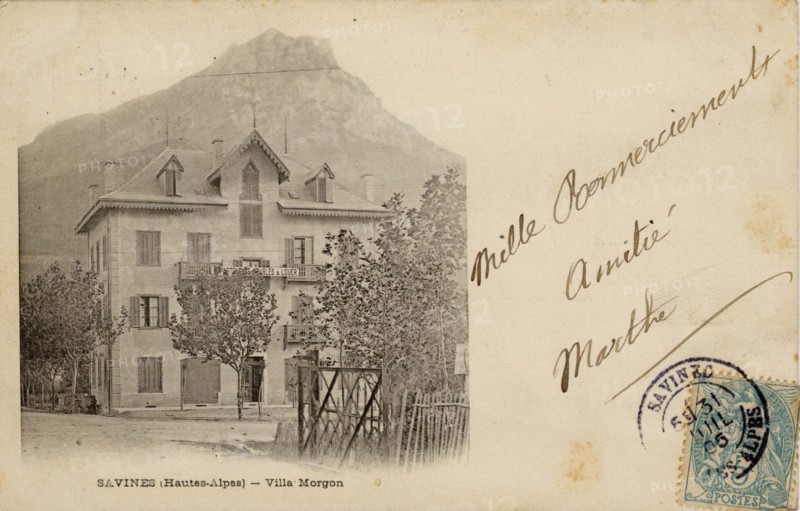 Mille Remerciements
Amitié
Marthe
SAVINES
31
JUIL
05
ALPES
POSTES
SAVINES (Hautes-Alpes) — Villa Morgon
PHOTO12